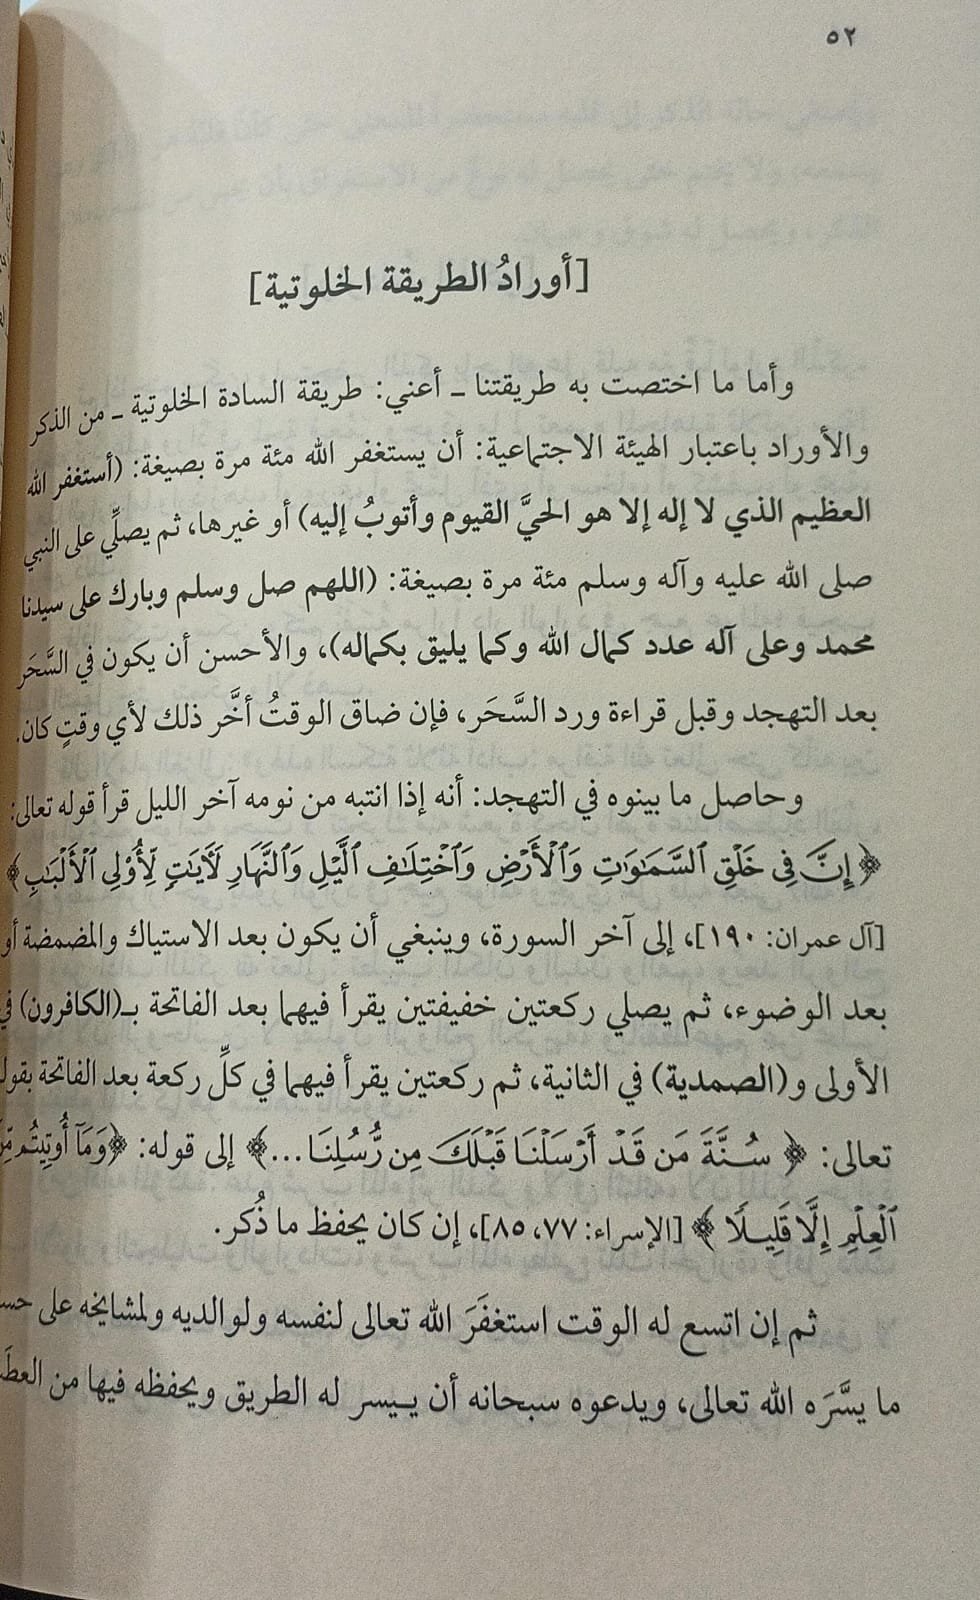 ٥٢
[أورادُ الطريقة الخلوتية]
وأما ما اختصت به طريقتنا ـ أعني: طريقة السادة الخلوتية ـ من الذكر
والأوراد باعتبار الهيئة الاجتماعية: أن يستغفر الله مئة مرة بصيغة: (أستغفر الله
العظيم الذي لا إله إلا هو الحيَّ القيوم وأتوبُ إليه) أو غيرها، ثم يصلِّي على النبي
صلى الله عليه وآله وسلم مئة مرة بصيغة: (اللهم صل وسلم وبارك على سيدنا
محمد وعلى آله عدد كمال الله وكما يليق بكماله)، والأحسن أن يكون في السَّحَر
بعد التهجد وقبل قراءة ورد السَّحَر، فإن ضاق الوقتُ أخَّر ذلك لأي وقتٍ كان.
وحاصل ما بينوه في التهجد: أنه إذا انتبه من نومه آخر الليل قرأ قوله تعالى:
﴿إِنَّ فِي خَلْقِ ٱلسَّمَٰوَٰتِ وَٱلْأَرْضِ وَٱخْتِلَٰفِ ٱلَّيْلِ وَٱلنَّهَارِ لَأٓيَٰتٍ لِّأُو۟لِى ٱلْأَلْبَٰبِ﴾
[آل عمران: ١٩٠]، إلى آخر السورة، وينبغي أن يكون بعد الاستياك والمضمضة أو
بعد الوضوء، ثم يصلي ركعتين خفيفتين يقرأ فيهما بعد الفاتحة بـ(الكافرون) في
الأولى و(الصمدية) في الثانية، ثم ركعتين يقرأ فيهما في كلِّ ركعة بعد الفاتحة
تعالى: ﴿سُنَّةَ مَن قَدْ أَرْسَلْنَا قَبْلَكَ مِن رُّسُلِنَا...﴾ إلى قوله: ﴿وَمَآ أُوتِيتُم
ٱلْعِلْمِ إِلَّا قَلِيلًا﴾ [الإسراء: ٧٧، ٨٥]، إن كان يحفظ ما ذُكر.
ثم إن اتسع له الوقت استغفَرَ الله تعالى لنفسه ولوالديه ولمشايخه على
ما يسَّرَه الله تعالى، ويدعوه سبحانه أن ييسر له الطريق ويحفظه فيها من